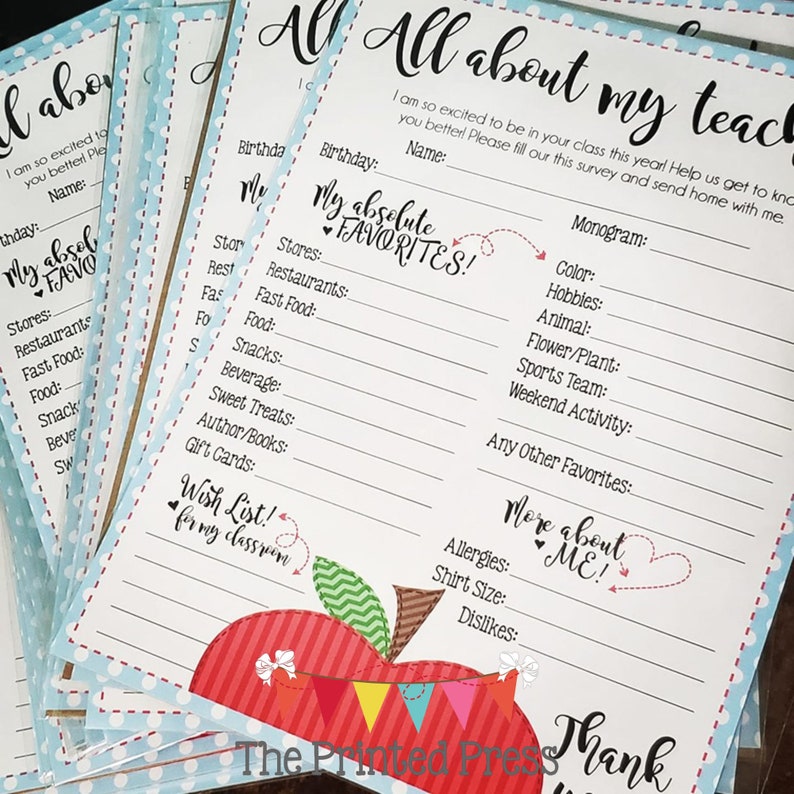 All about my teach
I am so excited to be in your class this year! Help us get to know
you better! Please fill our this survey and send home with me.
Name:
Birthday:
Monogram:
My absolute
FAVORITES!
Stores:
Restaurants:
Fast Food:
Food:
Snacks:
Beverage:
Sweet Treats:
Author/Books:
Gift Cards:
Color:
Hobbies:
Animal:
Flower/Plant:
Sports Team:
Weekend Activity:
Any Other Favorites:
Wish List!
for my classroom
More about
ME!
Allergies:
Shirt Size:
Dislikes:
Thank
The Printed Press
All
I
Birthday:
My
Stores:
Restaur
Fast Foo
Food:
Snacks:
Bevera
Sweet
Autho
Gift C
All abou
I am so excited to
you better! Ple
Name:
thday:
My absolute
FAVO
Stores:
Restaurants:
Fast Food:
Food:
Snacks:
Beverag
Sweet
Author
Gift C